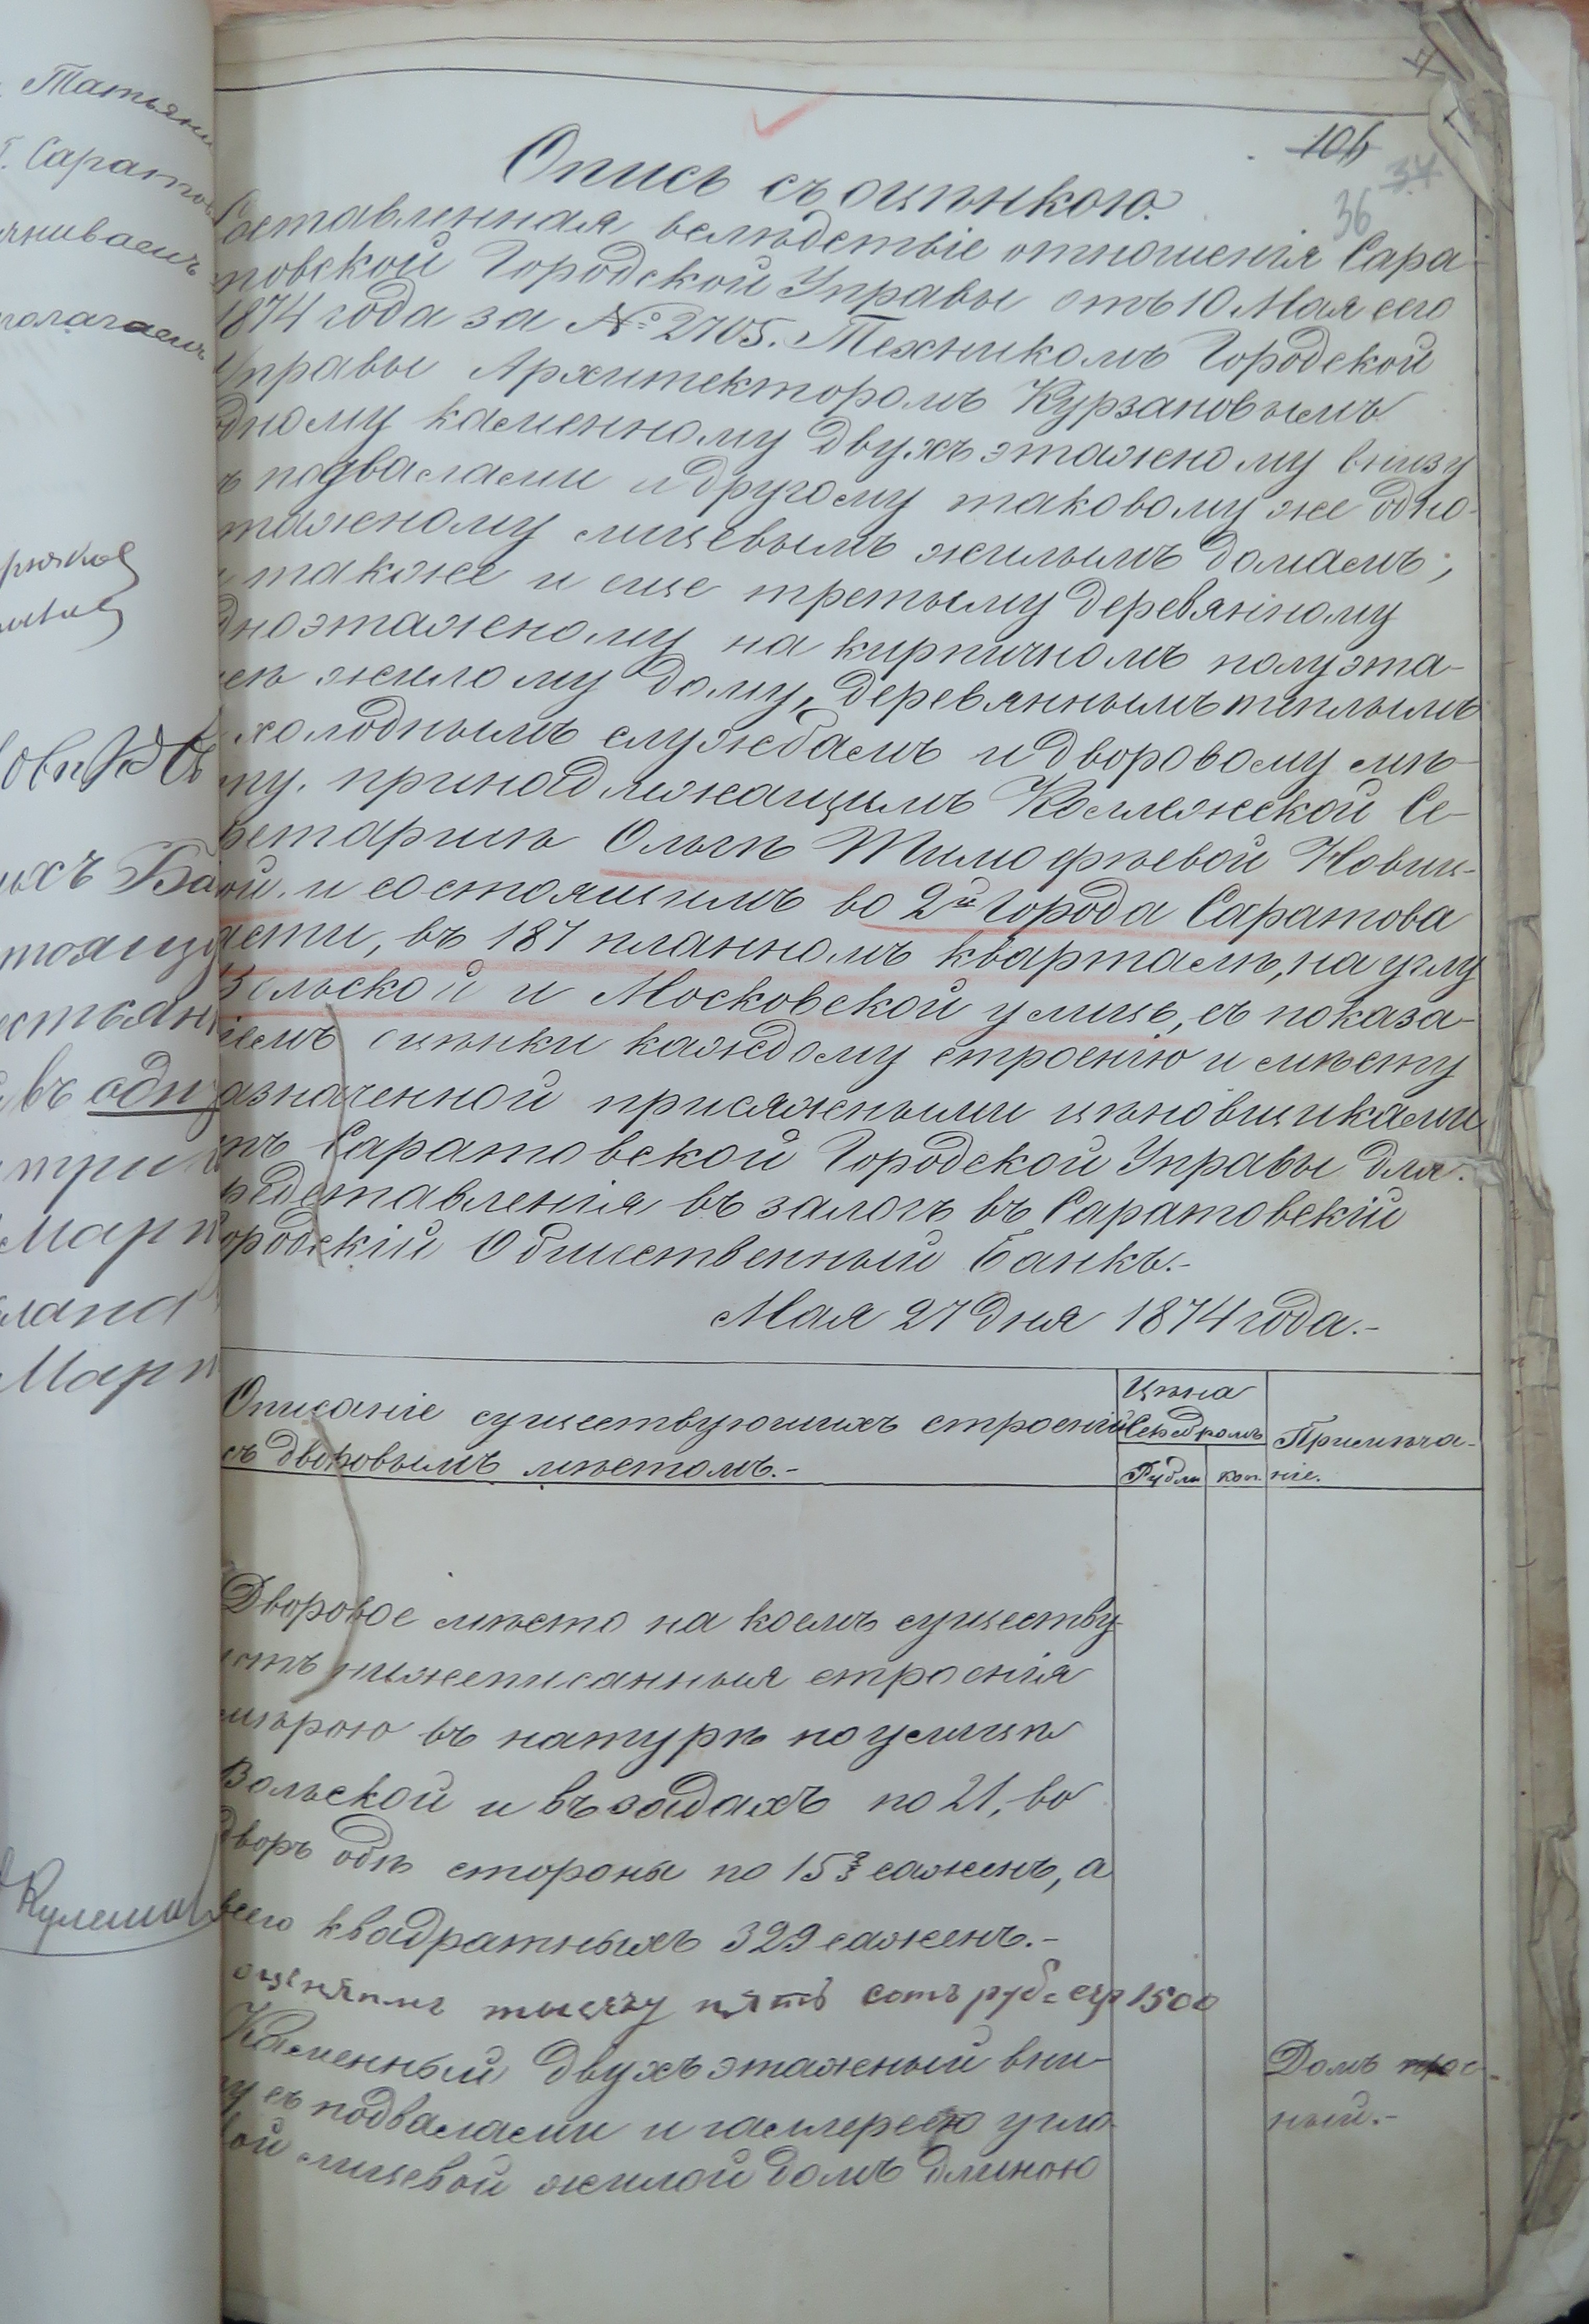 Татьяны
Саратов
106
34
36
Опись съ оцѣнкою.
Составленная вслѣдствіе отношенія Сара-
товской Городской Управы отъ 10 Мая сего
1874 года за № 2705. Техникомъ Городской
Управы Архитекторомъ Курзановымъ
одному каменному двухъэтажному внизу
съ подвалами и другому таковому же одно-
этажному лицевымъ жилымъ домамъ;
а также и еще третьему деревянному
одноэтажному на кирпичномъ полуэта-
жѣ жилому дому, деревяннымъ теплымъ
холоднымъ службамъ и дворовому мѣ-
сту, принадлежащимъ Коллежской Се-
кретаршѣ Ольгѣ Тимофѣевой Новиц-
кой, и состоящимъ во 2й Города Саратова
части, въ 187 планномъ кварталѣ, на углу
Вольской и Московской улицъ, съ показа-
ніемъ оцѣнки каждому строенію и мѣсту
назначенной присяжными цѣновщиками
отъ Саратовской Городской Управы для
представленія въ залогъ въ Саратовскій
Городскій Общественный Банкъ.-
Мая 27 дня 1874 года.-
Описаніе существующихъ строеній
съ дворовымъ мѣстомъ.-
Цѣна
Серебромъ
Рубли коп.
Примѣча-
ніе.
Дворовое мѣсто на коемъ существу-
ютъ нижеписанныя строенія
мѣрою въ натурѣ по улицѣ
Вольской и въ задахъ по 21, во
дворъ обѣ стороны по 15 2/3 сажень, а
всего квадратныхъ 329 сажень.-
оценяимъ тысячу пять сотъ руб= сер 1500
Каменный двухъэтажный вни-
зу съ подвалами и галлереею угло-
вой лицевой жилой домъ длиною
Домъ проч-
ный.-